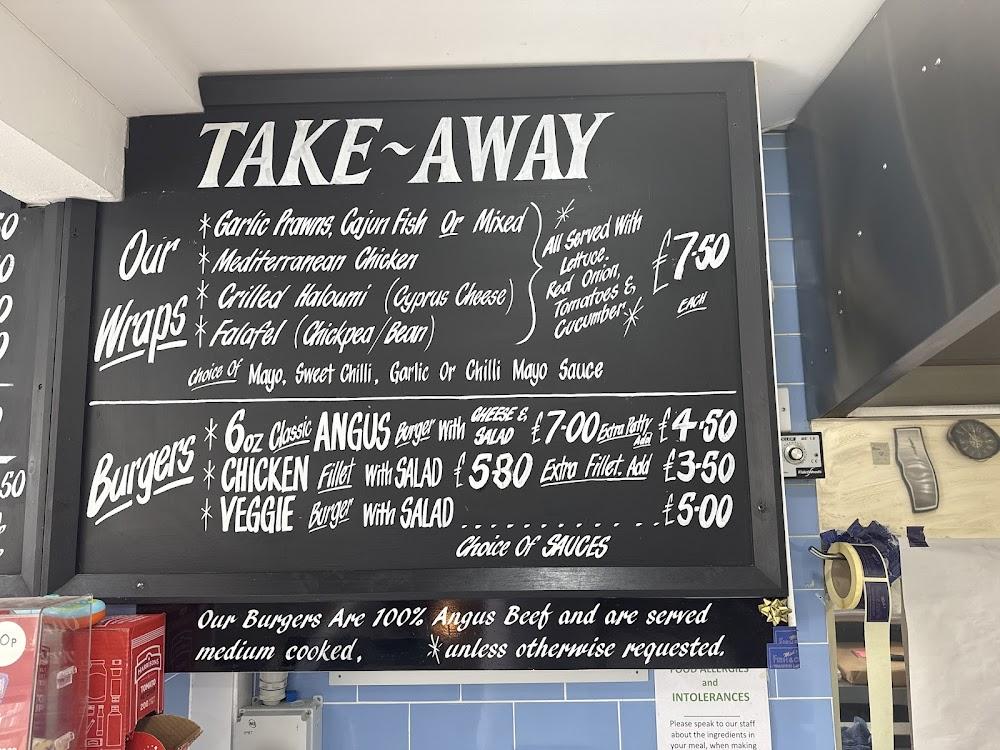 TAKE~AWAY
Our Wraps
* Garlic Prawns, Cajun Fish Or Mixed
* Mediterranean Chicken
* Grilled Haloumi (Cyprus Cheese)
* Falafel (Chickpea/Bean)
* All Served With
Lettuce.
Red Onion,
Tomatoes &
Cucumber. *
£7.50
EACH
Choice Of Mayo, Sweet Chilli, Garlic Or Chilli Mayo Sauce
Burgers
* 6oz Classic ANGUS Burger With CHEESE & SALAD £7.00 Extra Patty Add £4.50
* CHICKEN Fillet With SALAD £5.80 Extra Fillet. Add £3.50
* VEGGIE Burger With SALAD ................ £5.00
Choice Of SAUCES
Our Burgers Are 100% Angus Beef and are served
medium cooked, *unless otherwise requested.
FOOD ALLERGIES
and
INTOLERANCES
Please speak to our staff
about the ingredients in
your meal, when making
TOMATO
50